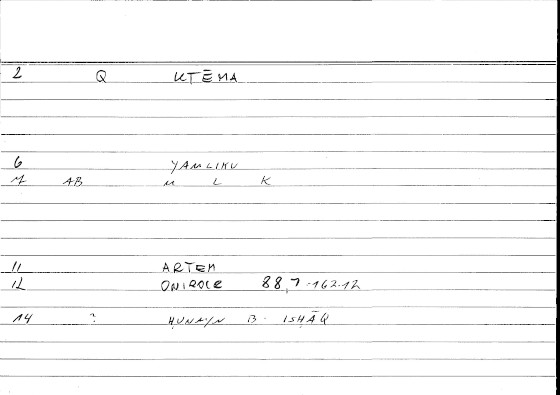 2 Q KTĒMA
6 YAMLIKU
7 AB M L K
11 ARTEM
12 ONIROCR 88,7-162.12
14 ? ḤUNAYN B. ISḤĀQ